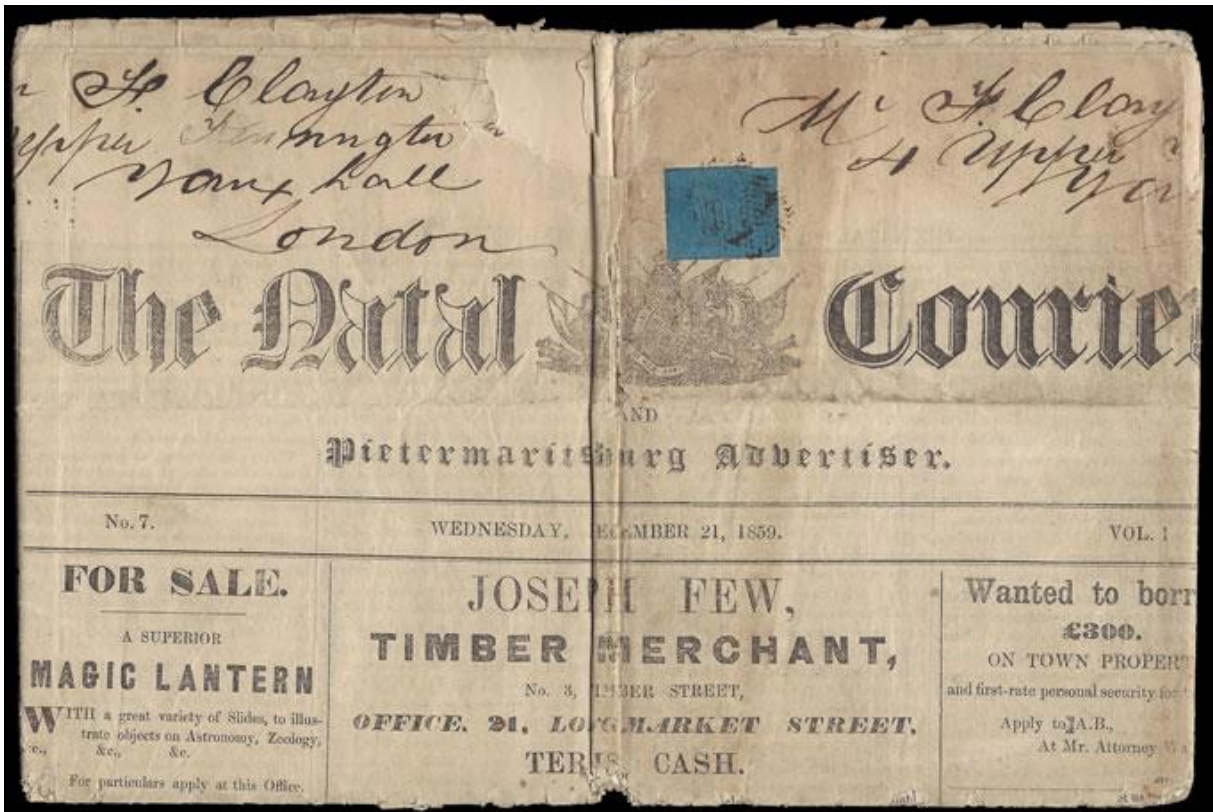 F. Clayton
Upper Kennington
Vauxhall
London
Mr F. Clay
4 Upper
The Natal Courie
AND
Pietermaritzburg Advertiser.
No. 7.
WEDNESDAY, DECEMBER 21, 1859.
VOL. 1
FOR SALE.
A SUPERIOR
MAGIC LANTERN
WITH a great variety of Slides, to illus-
trate objects on Astronomy, Zoology,
&c., &c., &c.
For particulars apply at this Office.
JOSEPH FEW,
TIMBER MERCHANT,
No. 3, TIMBER STREET,
OFFICE. 21, LONGMARKET STREET.
TERMS, CASH.
Wanted to borr
£300.
ON TOWN PROPER
and first-rate personal security for
Apply to A.B.,
At Mr. Attorney